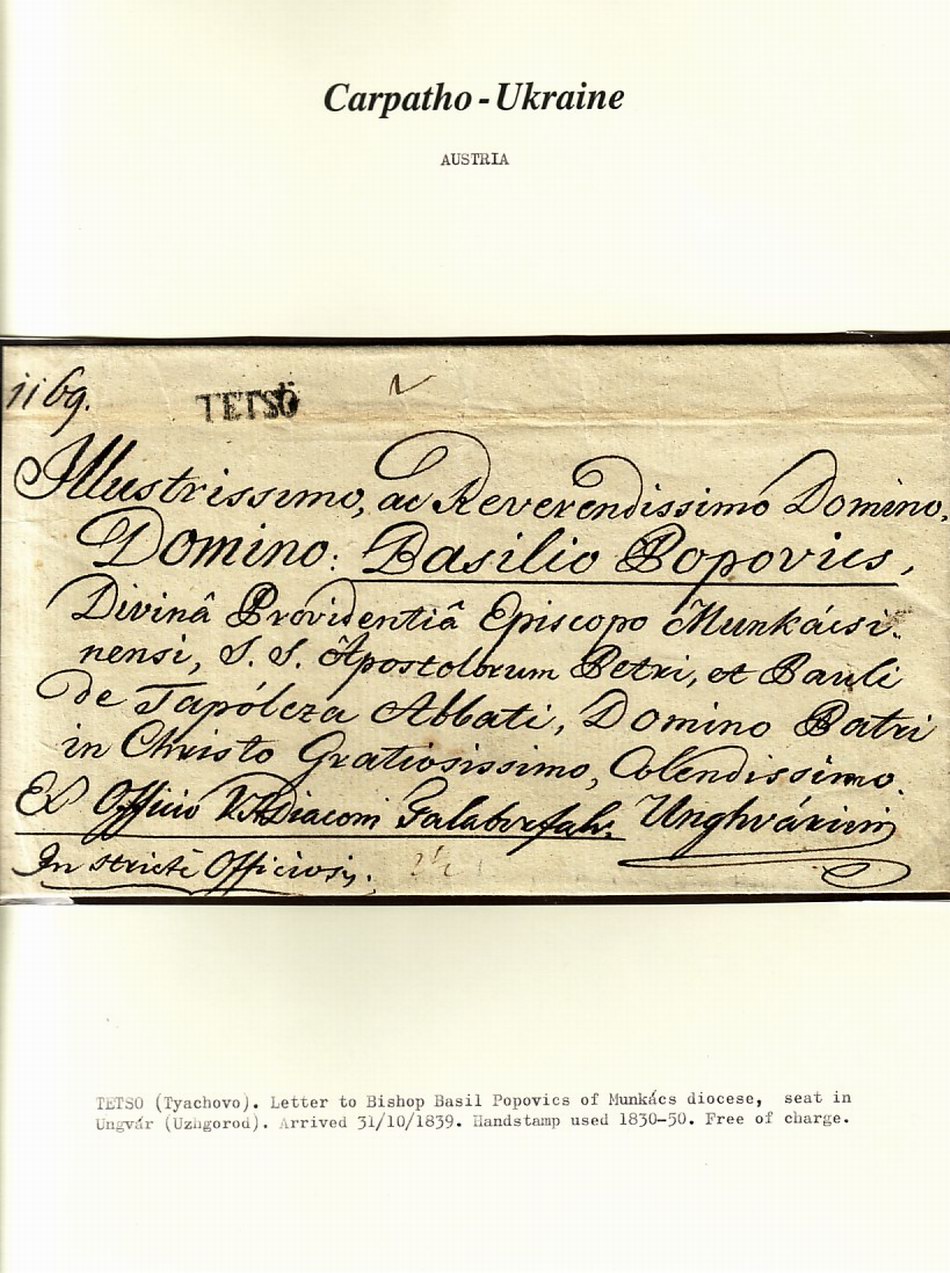 Carpatho-Ukraine
AUSTRIA
1169.
TETSÖ
Illustrissimo, ac Reverendissimo Domino,
Domino: Basilio Popovics,
Divinâ Providentiâ Episcopo Munkácsi-
nensi, S. S. Apostolorum Petri, et Pauli
de Tapólcza Abbati, Domino Patri
in Christo Gratiosissimo, Colendissimo.
Ex Officio V. ADiaconi Unghvárini
In strictè Officiosis.
TETSO (Tyachovo). Letter to Bishop Basil Popovics of Munkács diocese, seat in
Ungvár (Uzhgorod). Arrived 31/10/1839. Handstamp used 1830-50. Free of charge.